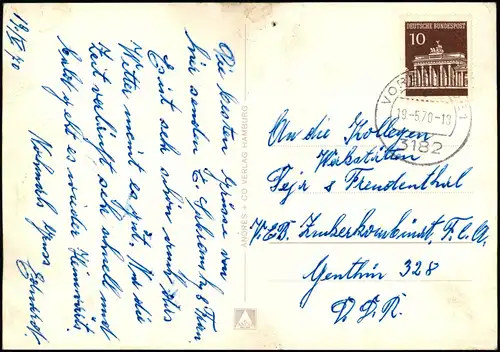 19/V 70
Die besten Grüsse von
hier senden E. Schramm & Frau.
Es ist sehr schön auch das
Wetter meint es gut. Nur die
Zeit verläuft sich schnell und
bald geht es wieder Heimwärts.
Nochmals Gruss Erhardt
ANDRES + CO VERLAG HAMBURG
DEUTSCHE BUNDESPOST
10
19.-5.70-18
3182
An die Kollegen
Werkstätten
Fejr & Freudenthal
V.E.B. Zuckerkombinat, F.C.A.
Genthin 328
D.D.R.